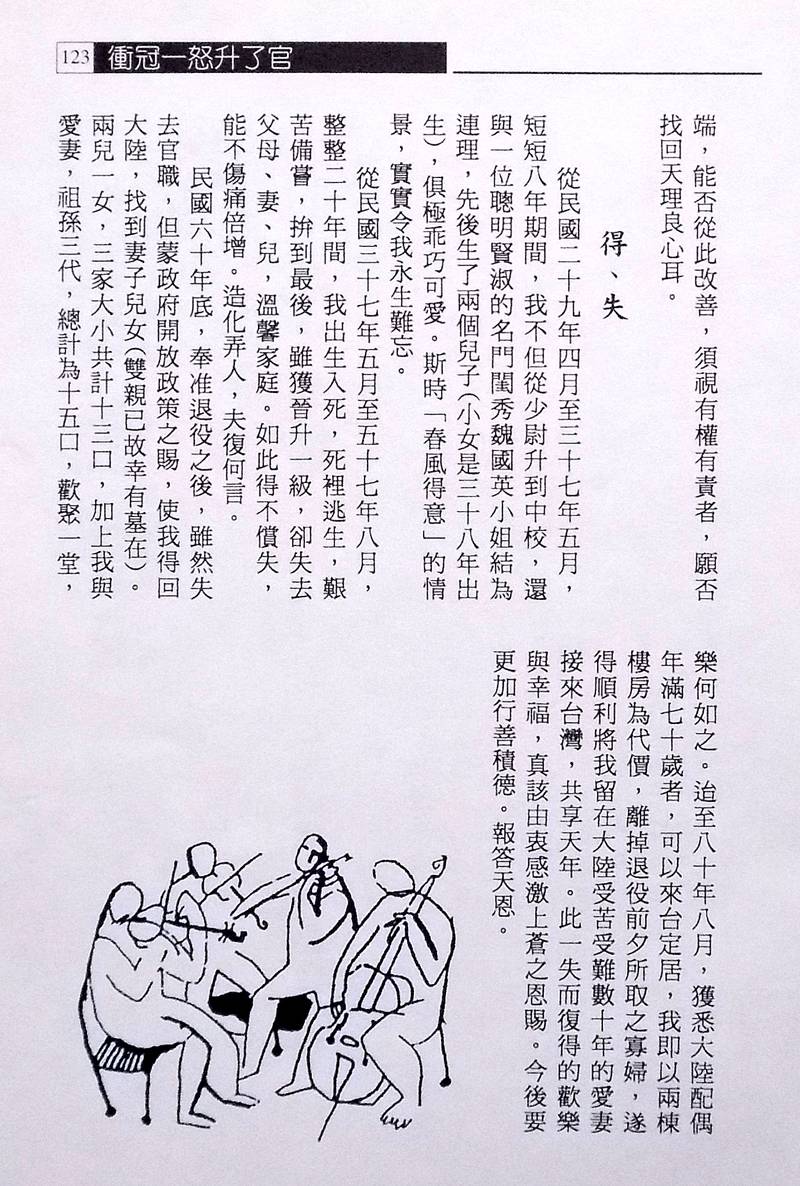 123 衝冠一怒升了官
端，能否從此改善，須視有權有責者，願否
找回天理良心耳。
得、失
從民國二十九年四月至三十七年五月，
短短八年期間，我不但從少尉升到中校，還
與一位聰明賢淑的名門閨秀魏國英小姐結為
連理，先後生了兩個兒子（小女是三十八年出
生），俱極乖巧可愛。斯時「春風得意」的情
景，實實令我永生難忘。
從民國三十七年五月至五十七年八月，
整整二十年間，我出生入死，死裡逃生，艱
苦備嘗，拚到最後，雖獲晉升一級，卻失去
父母、妻、兒，溫馨家庭。如此得不償失，
能不傷痛倍增。造化弄人，夫復何言。
民國六十年底，奉准退役之後，雖然失
去官職，但蒙政府開放政策之賜，使我得回
大陸，找到妻子兒女（雙親已故幸有墓在）。
兩兒一女，三家大小共計十三口，加上我與
愛妻，祖孫三代，總計為十五口，歡聚一堂，
樂何如之。迨至八十年八月，獲悉大陸配偶
年滿七十歲者，可以來台定居，我即以兩棟
樓房為代價，離掉退役前夕所取之寡婦，遂
得順利將我留在大陸受苦受難數十年的愛妻
接來台灣，共享天年。此一失而復得的歡樂
與幸福，真該由衷感激上蒼之恩賜。今後要
更加行善積德。報答天恩。